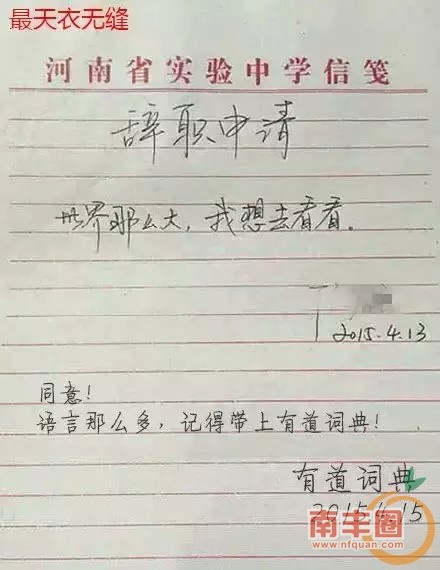 最天衣无缝
河南省实验中学信笺
辞职申请
世界那么大，我想去看看．
2015.4.13
同意！
语言那么多，记得带上有道词典！
有道词典
2015.4.15
南丰圈
www.nfquan.com